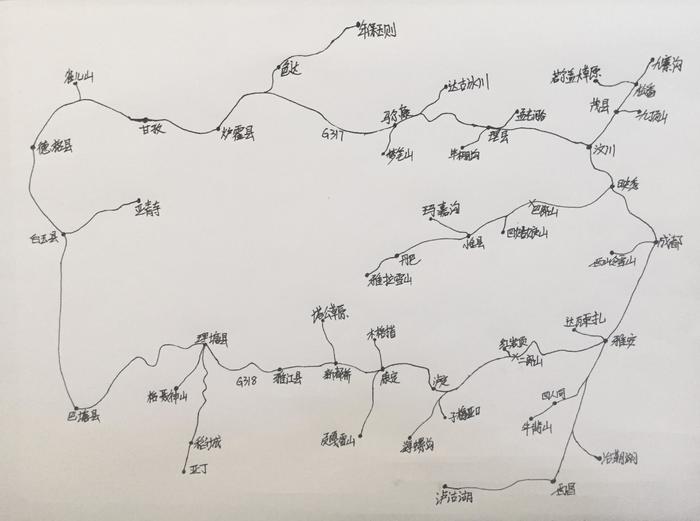 年保玉则
色达
雀儿山
达古冰川
若尔盖大草原
九寨沟
松潘
茂县
九顶山
甘孜
炉霍县
G317
马尔康
孟屯河谷
理县
毕棚沟
梦笔山
汶川
德格县
映秀
亚青寺
白玉县
玛嘉沟
巴朗山
四姑娘山
小金县
丹巴
雅拉雪山
成都
西岭雪山
塔公草原
木格措
红岩顶
达瓦更扎
理塘县
二郎山
雅安
G318
雅江县
新都桥
康定
泸定
格聂神山
巴塘县
子梅垭口
四人同
牛背山
稻城
亚丁
贡嘎雪山
海螺沟
冶勒湖
泸沽湖
西昌